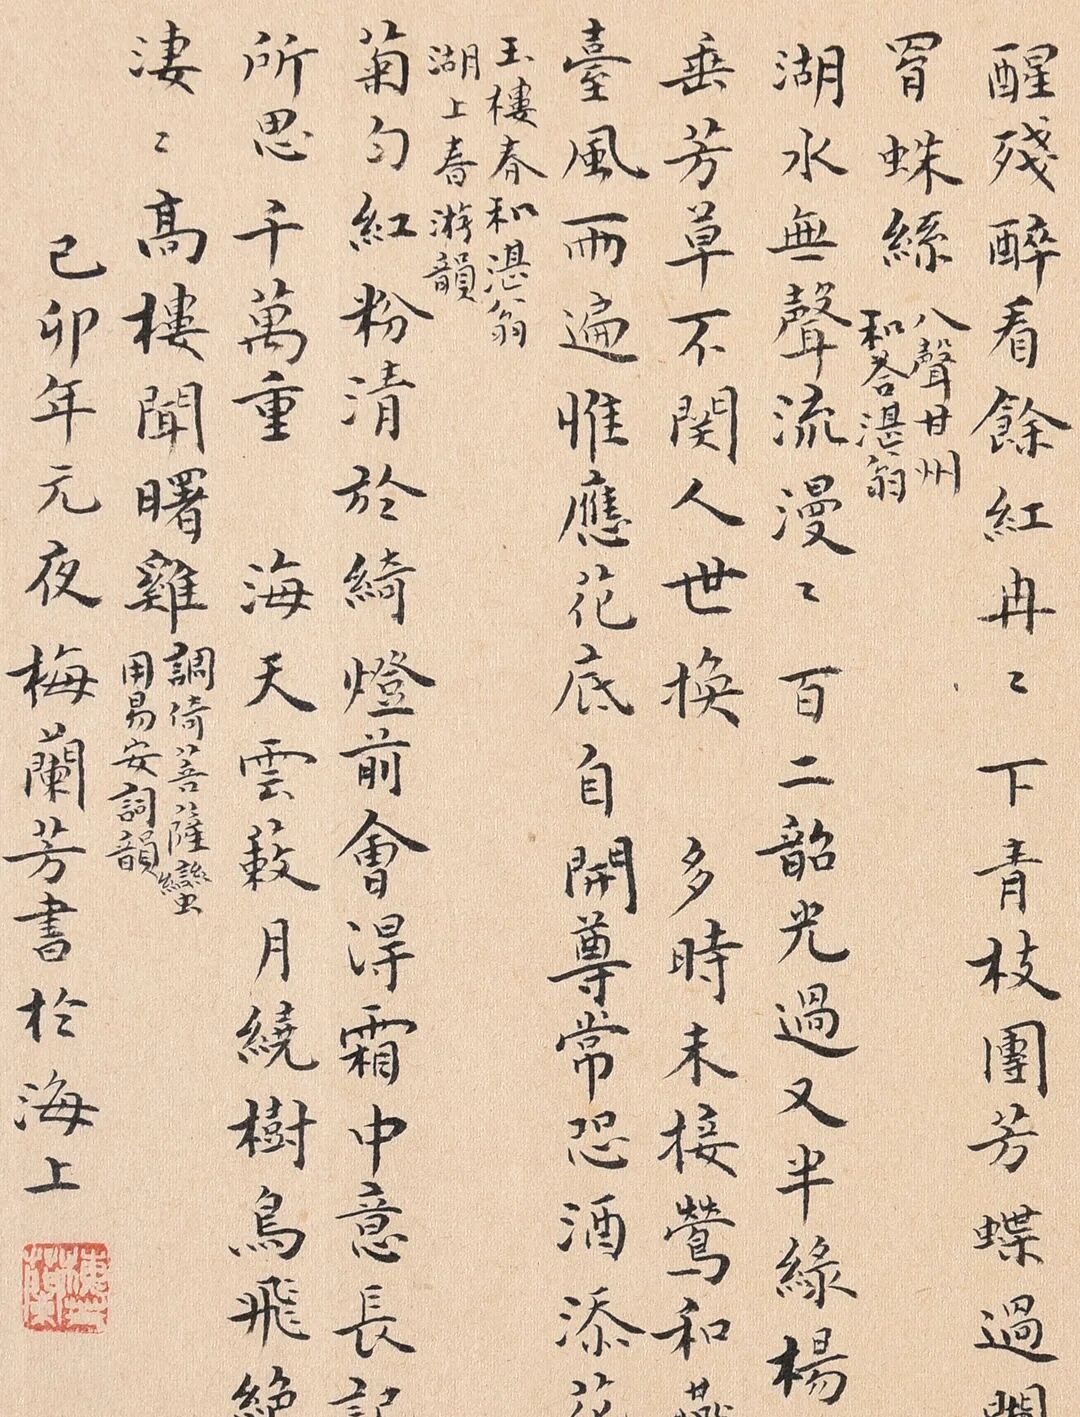 醒殘醉看餘紅冉〻 下青枝團芳蝶過闌
罥蛛絲
八聲甘州
和答湛翁
湖水無聲流漫〻 百二韶光過又半綠楊
垂芳草不関人世換 多時未接鶯和燕
臺風雨遍惟應花底自開尊常恐酒添花
玉樓春和湛翁
湖上春游韻
菊勻紅粉清於綺燈前會得霜中意長記
所思千萬重 海天雲蔌月繞樹鳥飛絕
淒〻高樓聞曙雞
調倚菩薩蠻
用易安詞韻
己卯年元夜梅蘭芳書於海上